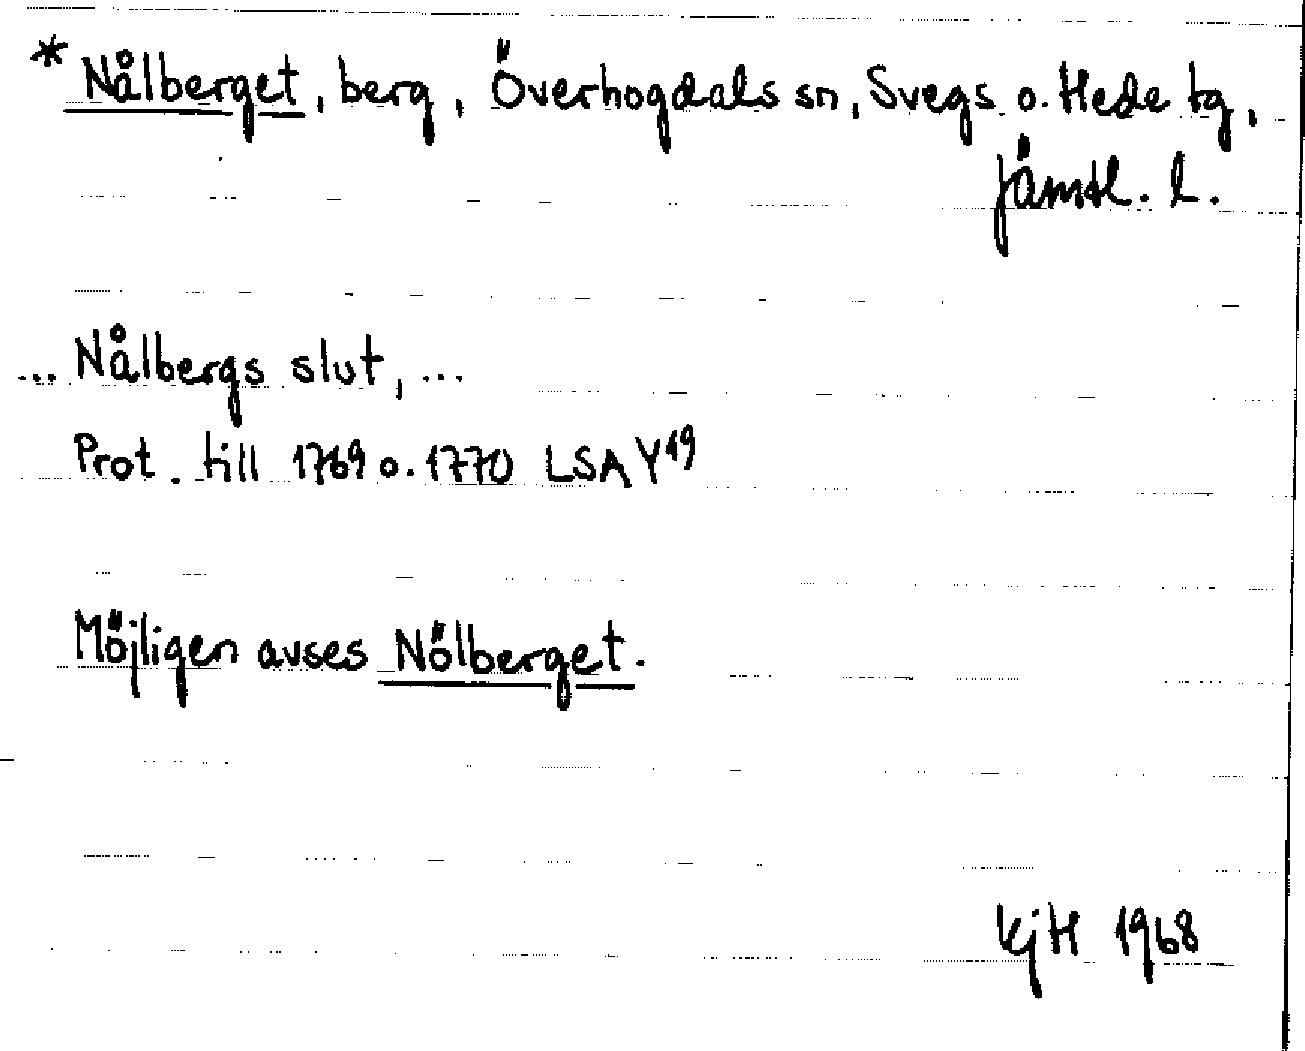 * Nålberget, berg, Överhogdals sn, Svegs o. Hede tg,
Jämtl. l.
... Nålbergs slut, ...
Prot. till 1769 o. 1770 LSA Y19
Möjligen avses Nölberget.
KjH 1968